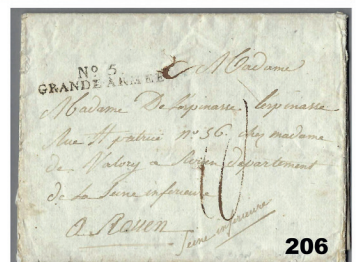 No 5.
GRANDE ARMÉE
Madame
Madame De Lespinasse Lespinasse
Rue St patrice no 56. chez madame
de Valory à Rouen departement
de La Seine inferieure
a Rouen
Seine inferieure
206